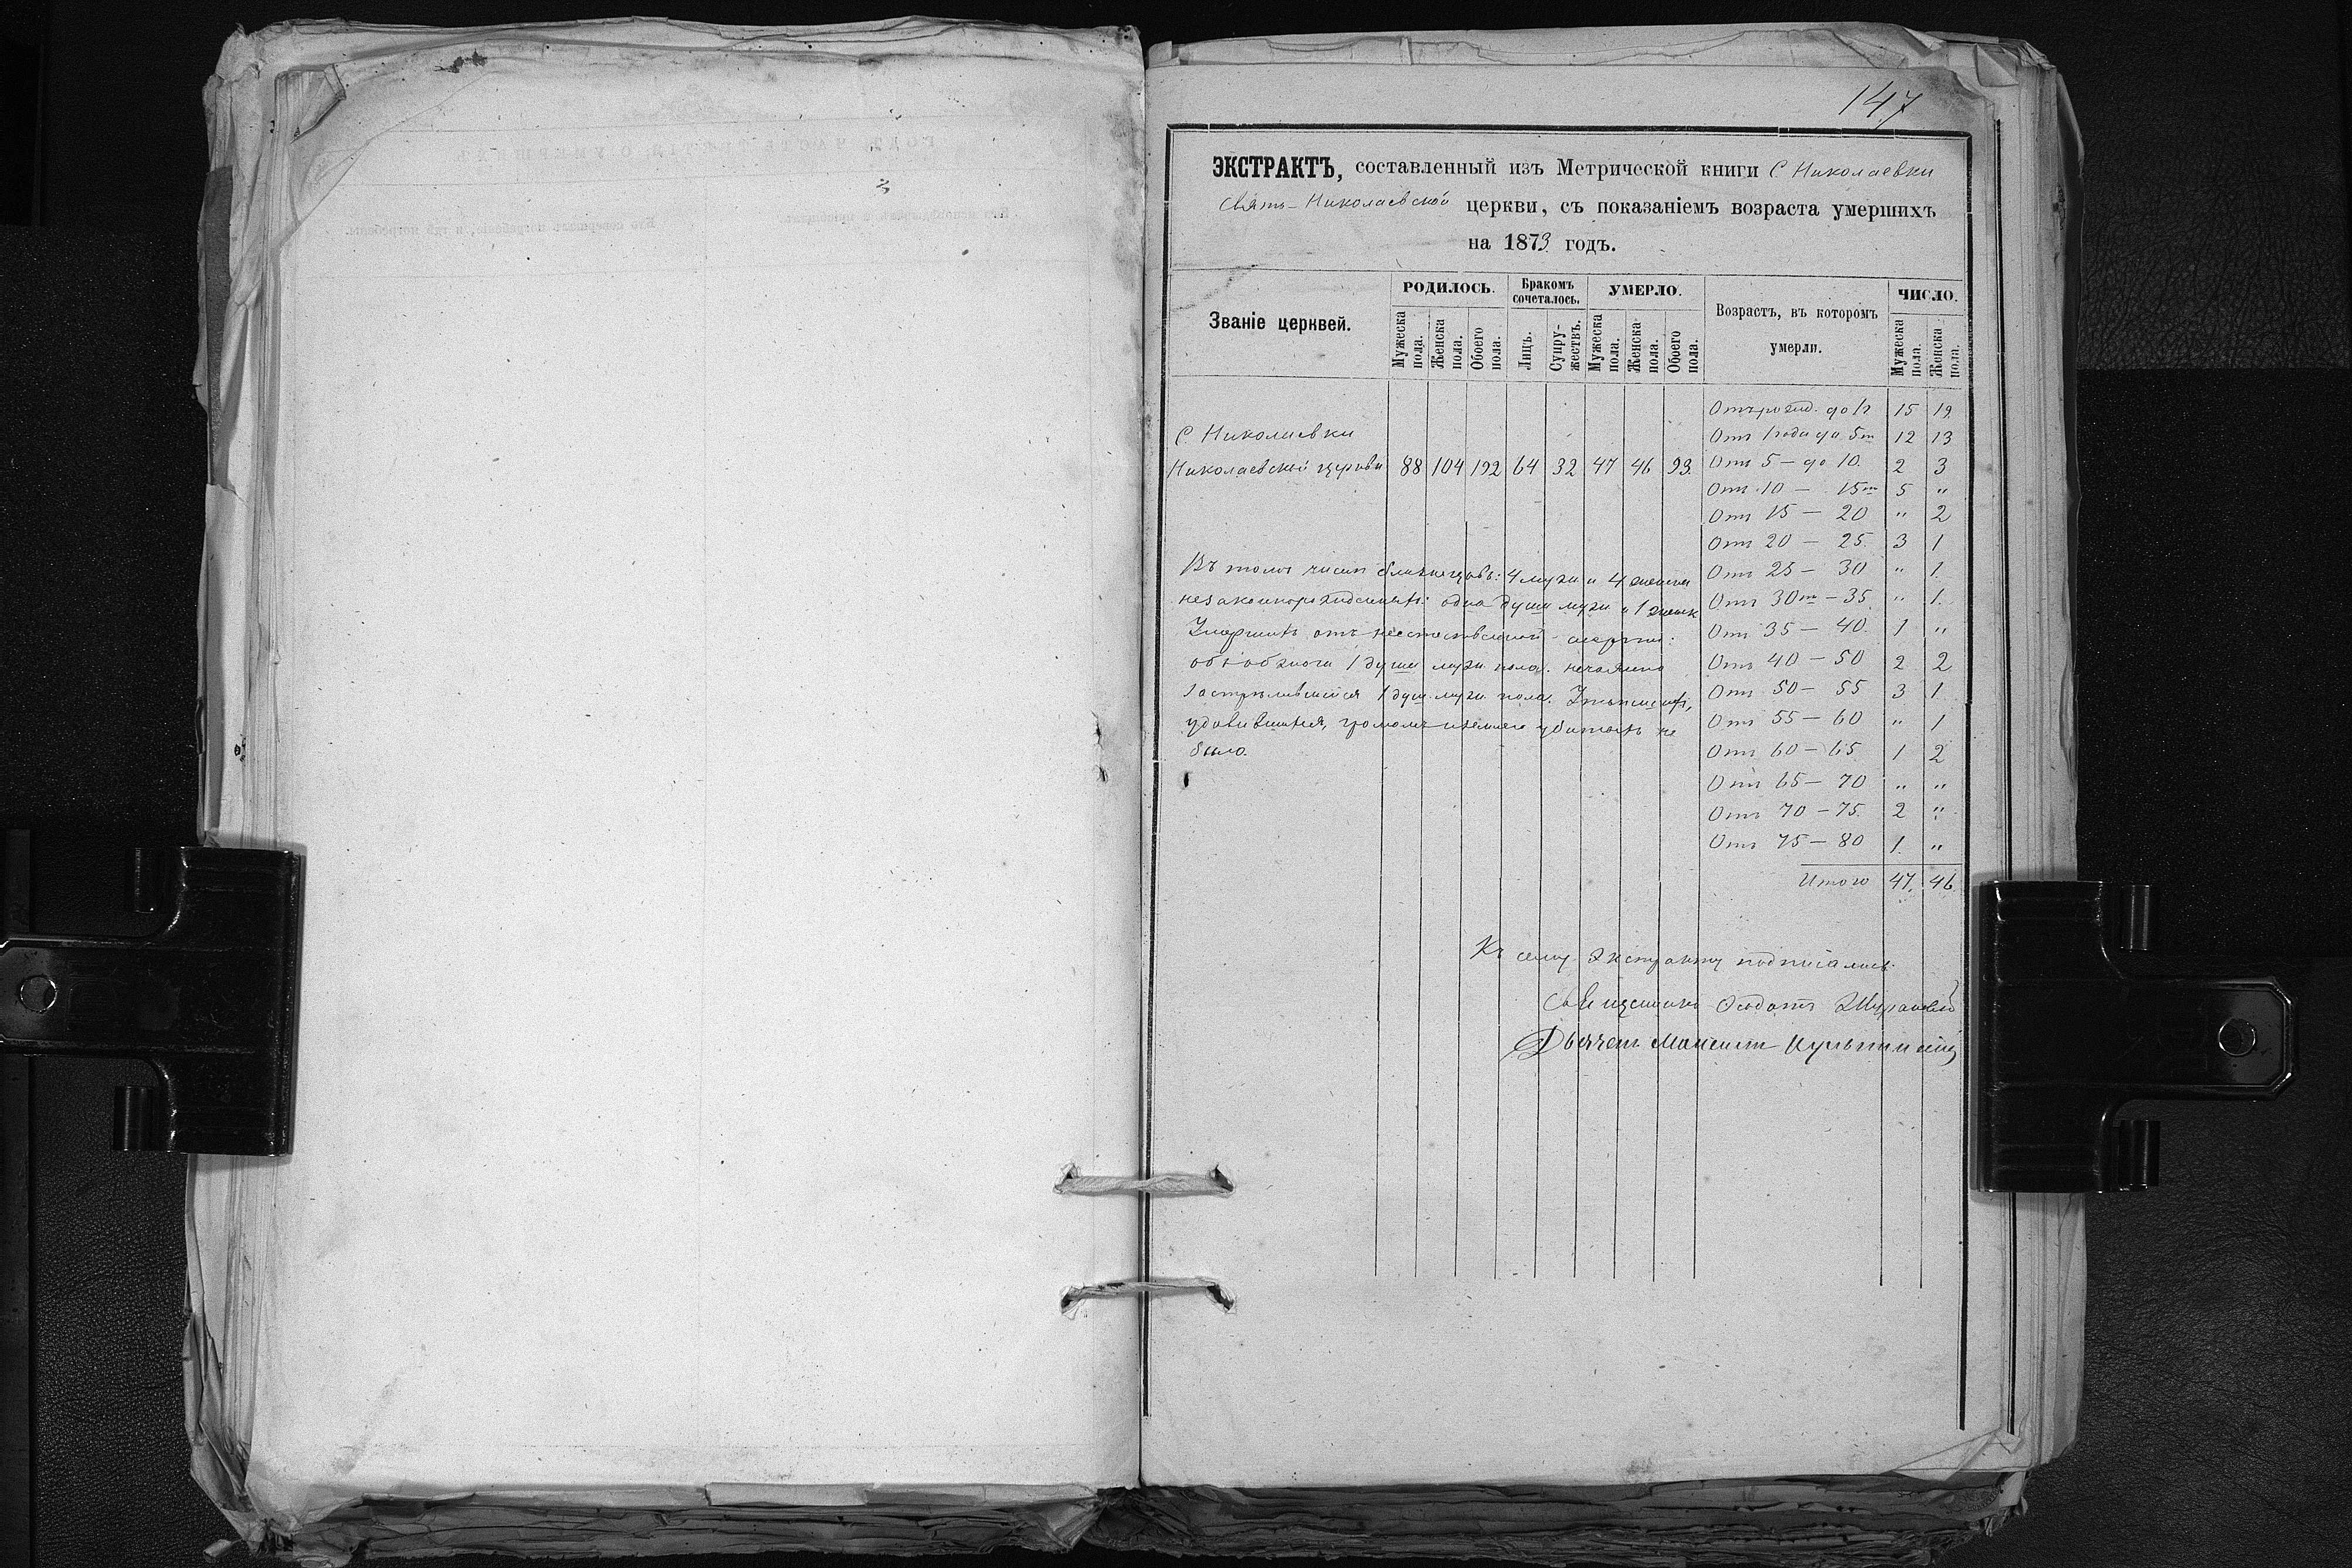 147
ЭКСТРАКТЪ, составленный изъ Метрической книги С Николаевки
Свято-Николаевской церкви, съ показаніемъ возраста умершихъ
на 1873 годъ.
Званіе церквей.
РОДИЛОСЬ.
Бракомъ сочеталось.
УМЕРЛО.
Возрастъ, въ которомъ умерли.
ЧИСЛО.
Мужеска пола.
Женска пола.
Обоего пола.
Лицъ.
Супружествъ.
Мужеска пола.
Женска пола.
Обоего пола.
Мужеска пола.
Женска пола.
Отъ рожд. до 1г 15 19
С. Николаевки Отъ 1 года до 5ти 12 13
Николаевской церкви 88 104 192 64 32 47 46 93. Отъ 5 — до 10. 2 3
Отъ 10 — 15ти 5 "
Отъ 15 — 20 " 2
Отъ 20 — 25. 3 1
Въ томъ числѣ близнецовъ: 4 муж и 4 женска Отъ 25 — 30 " 1.
незаконорожденныхъ: одна душа муж и 1 женск Отъ 30ти — 35. " 1.
Умершихъ отъ неестественной смерти: Отъ 35 — 40. 1 "
1 душа муж. пола. нечаянно Отъ 40 — 50 2 2
застрѣлившійся 1 душ. муж пола. Отъ 50 — 55 3 1
удавившихся, громомъ убитыхъ не Отъ 55 — 60 " 1
было. Отъ 60 — 65 1 2
Отъ 65 — 70 " "
Отъ 70 — 75. 2 "
Отъ 75 — 80 1. "
Итого 47. 46.
Къ сему экстракту подписались:
Священникъ Феодотъ
Дьячекъ